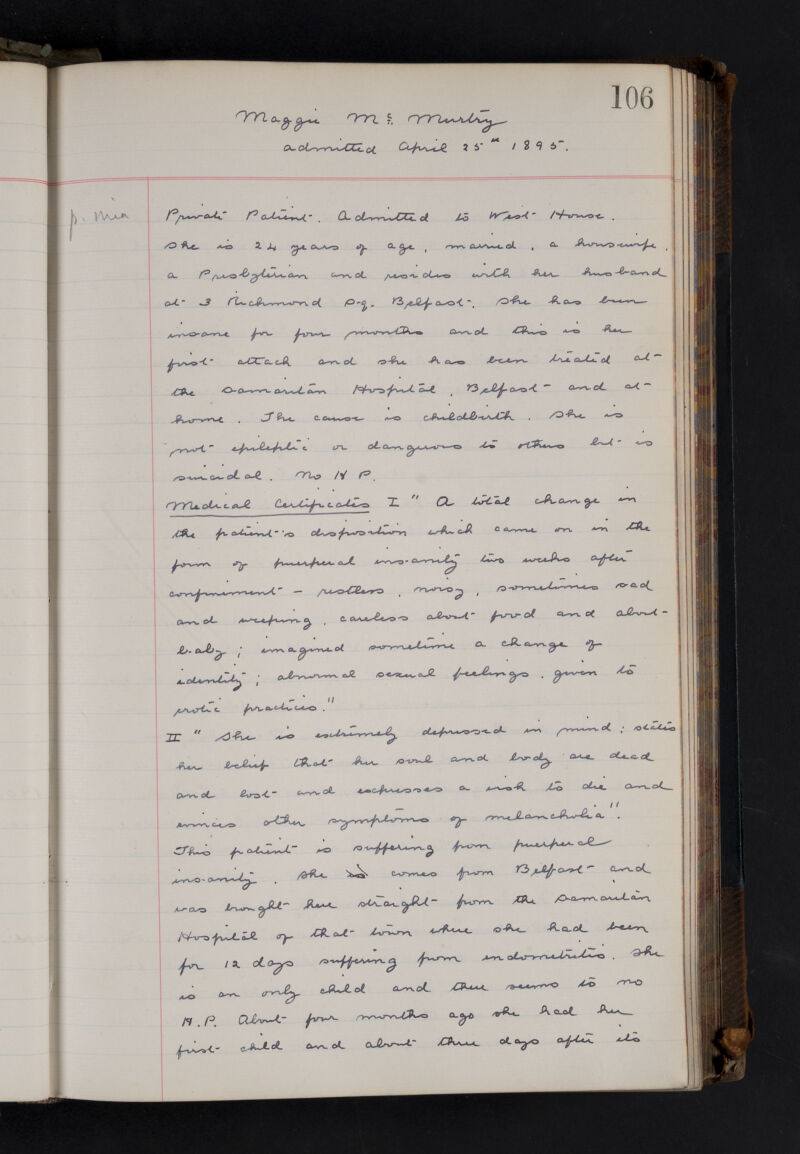 106
Maggie Mc Murtry
admitted April 25th 1895.
Private Patient. Admitted to West House.
She is 24 years of age, married, a housewife,
a Presbyterian and resides with her husband
at 3 Richmond Sq. Belfast. She has been
insane for four months and this is her
first attack and she has been treated at
the Samaritan Hospital, Belfast and at
home. The cause is childbirth. She is
not epileptic or dangerous to others but is
suicidal. No H P.
Medical Certificates I " A total change in
the patient's disposition which came on in the
form of puerperal insanity two weeks after
confinement - restless, noisy, sometimes sad
and weeping, careless about food and about
baby; imagined sometime a change of
identity; abnormal sexual feelings, given to
erotic practices."
II " She is extremely depressed in mind; states
her belief that her soul and body are dead
and lost and expresses a wish to die and
evinces other symptoms of melancholia".
This patient is suffering from puerperal
insanity. She is comes from Belfast and
was brought here straight from the Samaritan
Hospital of that town where she had been
for 12 days suffering from endometritis. She
is an only child and there seems to no
H.P. About four months ago she had her
first child and about three days after its